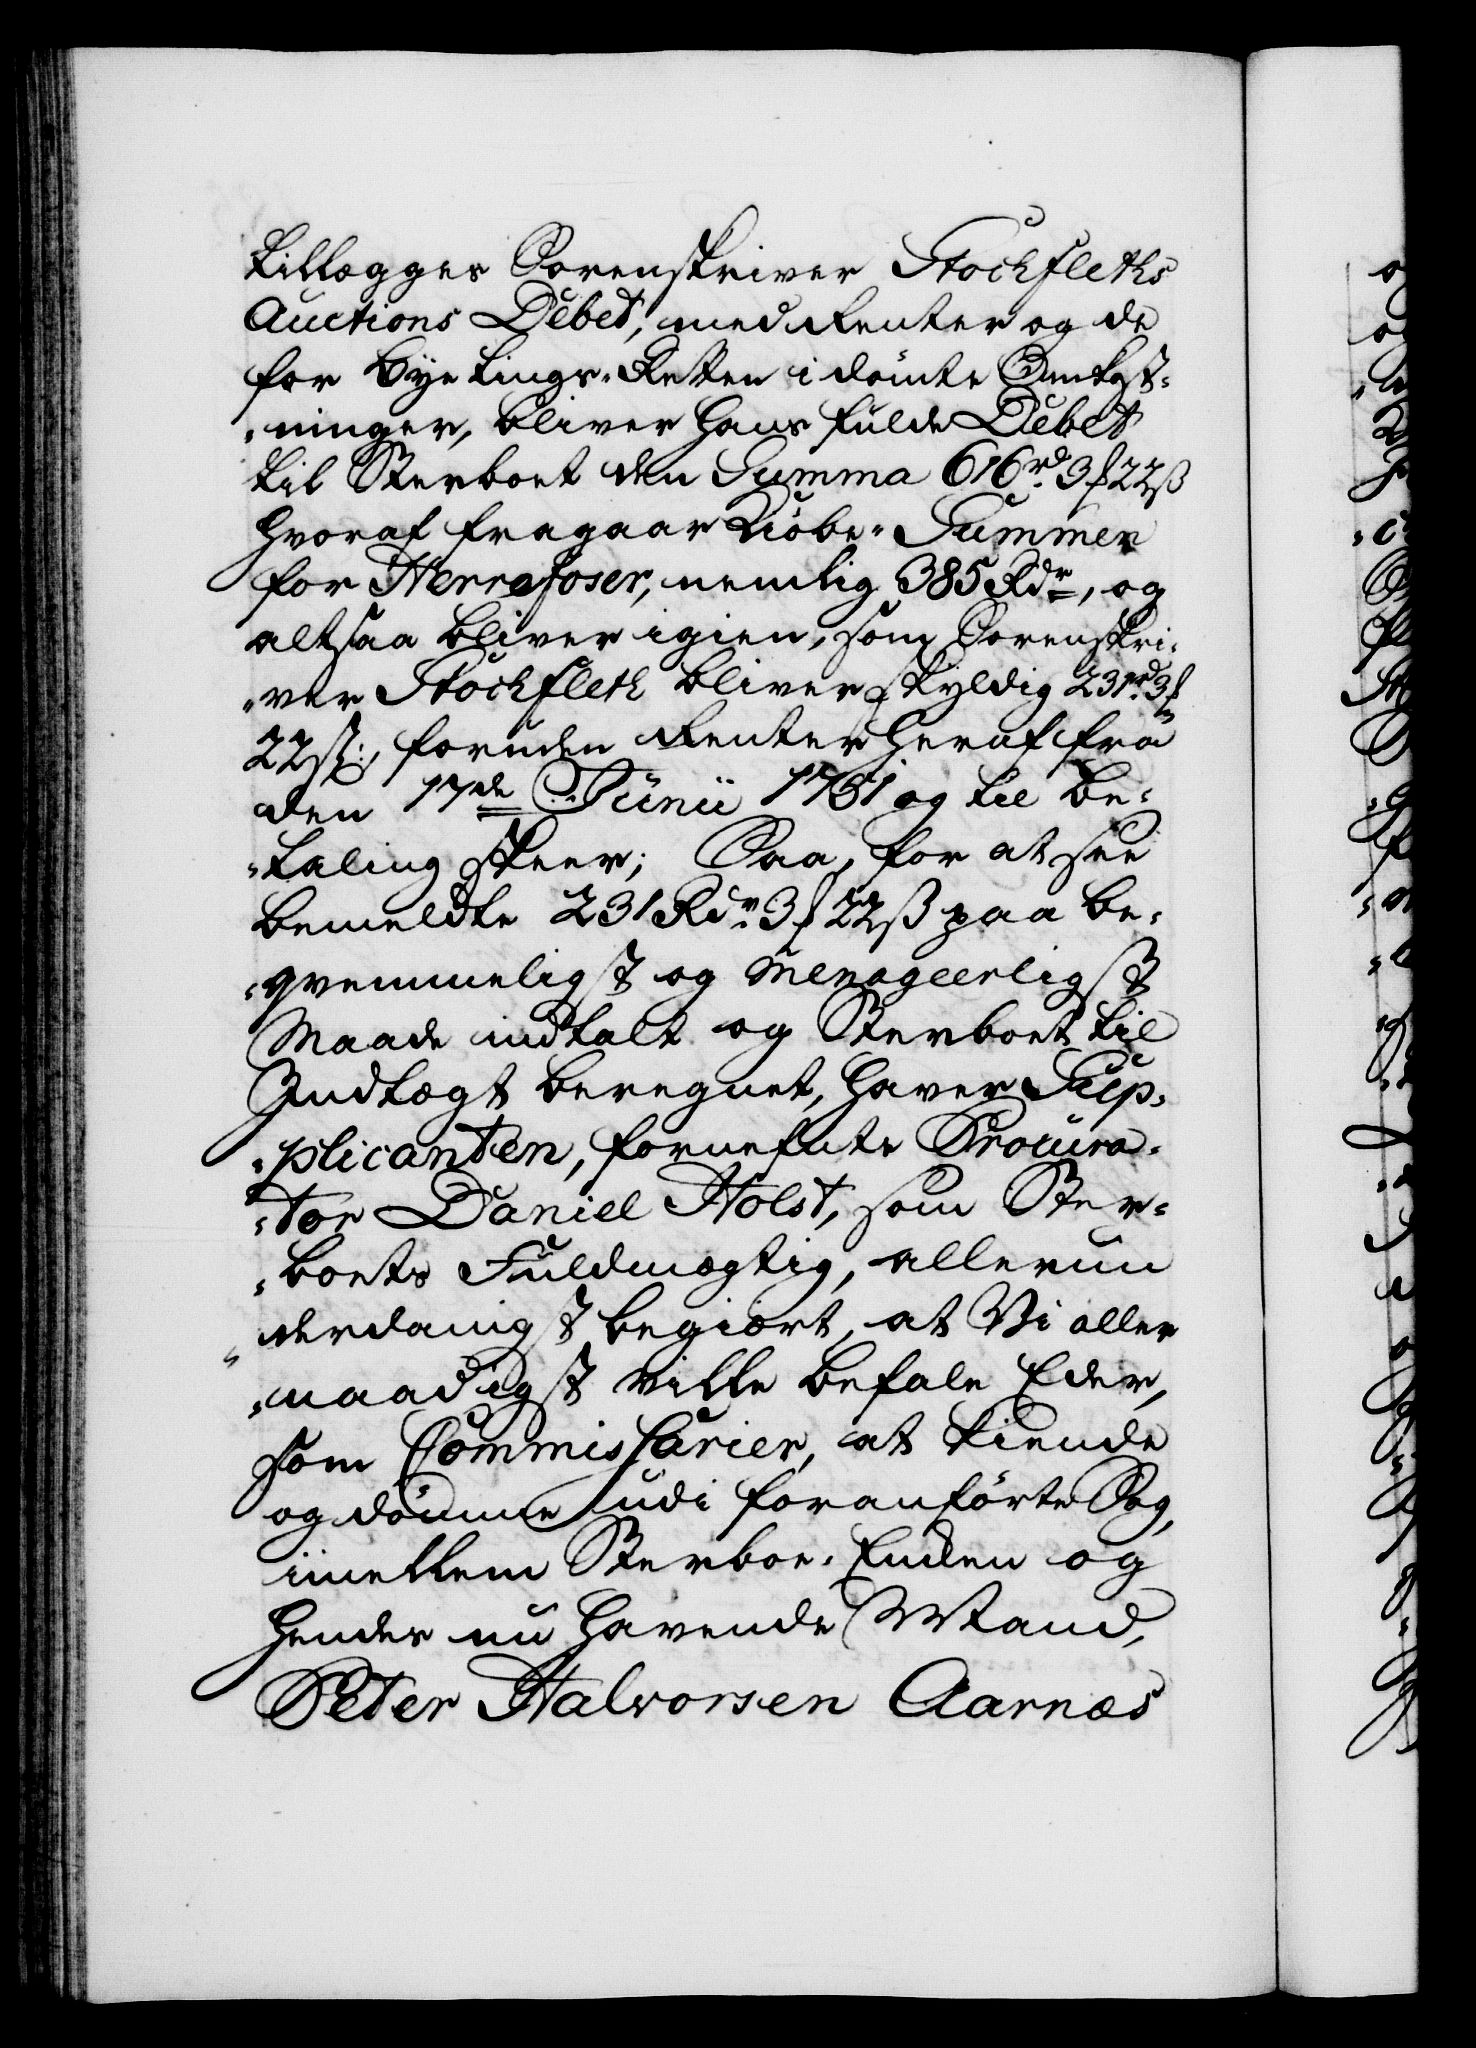 tillægges Sorenskriver Stockfleths
Auctions Debet, med Renter og de
for Bye tings-Retten i dömte Omkost-
-ninger, bliver hans fulde Debet
til Sterboet den Summa 616rd 3 f 22ß
hvoraf fragaar Kiöbe-Summen
for Herrefoser, nemlig 385 Rdr, og
altsaa bliver igien, som Sorenskri-
-ver Stockfleth bliver skyldig 231rd 3 f
22ß:, foruden Renter heraf fra
den 17de Junii 1761 og til be-
-taling skeer; Saa, for at see
bemeldte 231 Rdr 3 f 22ß paa be-
-qvemmeligst og Menageerligst
Maade indtalt og Sterboet til
Indtægt beregnet, haver Sup-
-plicanten, fornefnte Procura-
-tor Daniel Holst, som Ster-
-boets Fuldmægtig, allerun
-derdanigst begiært, at Vi aller
-naadigst ville befale Eder,
som Commissarier, at kiende
og dömme udi foranförte Sag,
imellem Sterboe-Enken og
hendes nu havende Mand,
Peter Halvorsen Aarnæs